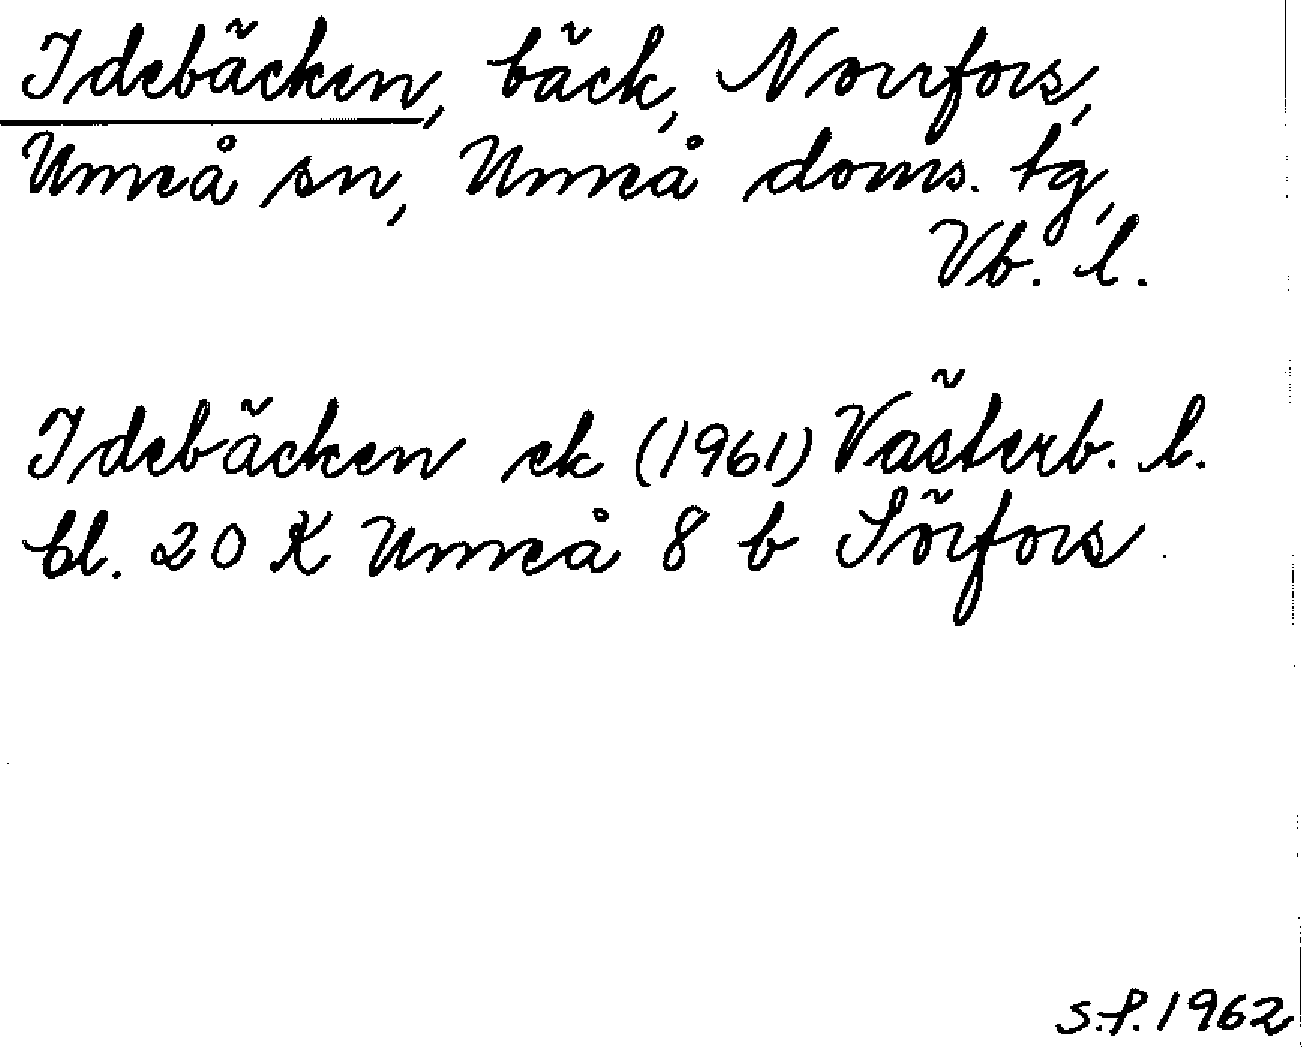 Idebäcken, bäck, Norrfors,
Umeå sn, Umeå doms. tg,
Vb. l.
Idebäcken ek (1961) Västerb. l.
bl. 20 K Umeå 8 b Sörfors
S.f. 1962